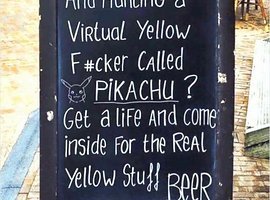 And Hunting a
Virtual Yellow
F#cker Called
PIKACHU ?
Get a life and come
inside For the Real
Yellow Stuff BEER